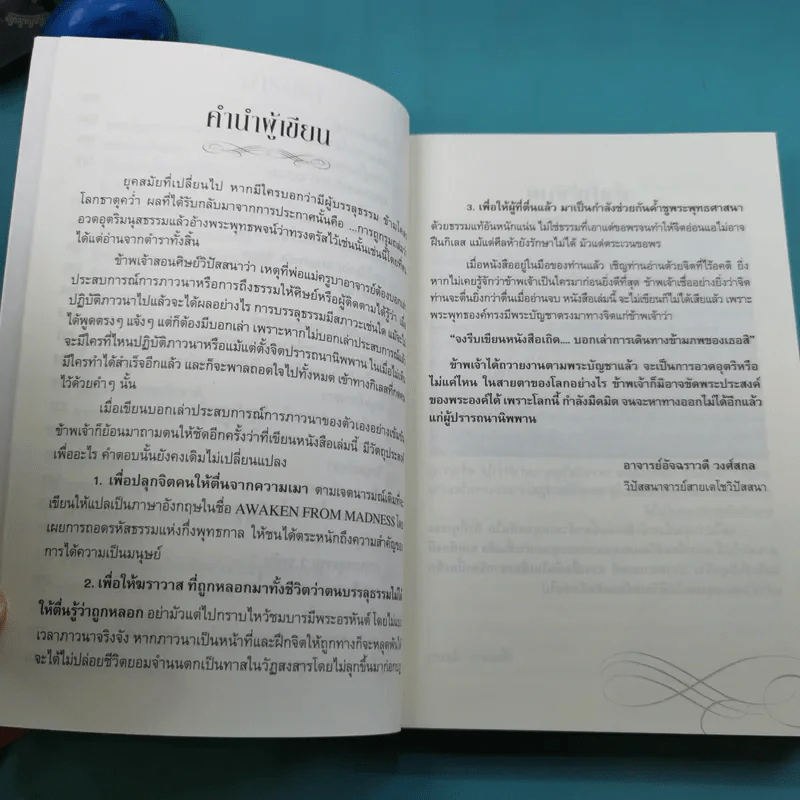 คำนำผู้เขียน
ยุคสมัยที่เปลี่ยนไป หากมีใครบอกว่ามีผู้บรรลุธรรม ข้าม
โลกธาตุคว่ำ ผลที่ได้รับกลับมาจากการประกาศนั้นคือ ...การถูกรุม
อวดอุตริมนุสธรรมแล้วอ้างพระพุทธพจน์ว่าทรงตรัสไว้เช่นนั้นเช่นนี้โดยที่
ได้แต่อ่านจากตำราทั้งสิ้น
ข้าพเจ้าสอนศิษย์วิปัสสนาว่า เหตุที่พ่อแม่ครูบาอาจารย์ต้องบอกเล่า
ประสบการณ์การภาวนาหรือการถึงธรรมให้ศิษย์หรือผู้ติดตามได้รู้ว่า เมื่อ
ปฏิบัติภาวนาไปแล้วจะได้ผลอย่างไร การบรรลุธรรมมีสภาวะเช่นใด แม้จะไม่
ได้พูดตรงๆ แจ้งๆ แต่ก็ต้องมีบอกเล่า เพราะหากไม่บอกเล่าประสบการณ์แล้ว
จะมีใครที่ไหนปฏิบัติภาวนาหรือแม้แต่ตั้งจิตปรารถนานิพพาน ในเมื่อไม่เห็น
มีใครทำได้สำเร็จอีกแล้ว และก็จะพาลถอดใจไปทั้งหมด เข้าทางกิเลสที่
ไว้ด้วยคำๆ นั้น
เมื่อเขียนบอกเล่าประสบการณ์การภาวนาของตัวเองอย่าง
ข้าพเจ้าก็ย้อนมาถามตนให้ชัดอีกครั้งว่าที่เขียนหนังสือเล่มนี้ มีวัตถุประสงค์
เพื่ออะไร คำตอบนั้นยังคงเดิมไม่เปลี่ยนแปลง
1. เพื่อปลุกจิตคนให้ตื่นจากความเมา ตามเจตนารมณ์เดิมที่จะ
เขียนให้แปลเป็นภาษาอังกฤษในชื่อ AWAKEN FROM MADNESS โดย
เผยการถอดรหัสธรรมแห่งกึ่งพุทธกาล ให้ชนได้ตระหนักถึงความสำคัญของ
การได้ความเป็นมนุษย์
2. เพื่อให้ฆราวาส ที่ถูกหลอกมาทั้งชีวิตว่าตนบรรลุธรรมไม่ได้
ให้ตื่นรู้ว่าถูกหลอก อย่ามัวแต่ไปกราบไหว้ชมบารมีพระอรหันต์ โดยไม่แบ่ง
เวลาภาวนาจริงจัง หากภาวนาเป็นหน้าที่และฝึกจิตให้ถูกทางก็จะหลุดพ้นได้
จะได้ไม่ปล่อยชีวิตยอมจำนนตกเป็นทาสในวัฏสงสารโดยไม่ลุกขึ้นมา
3. เพื่อให้ผู้ที่ตื่นแล้ว มาเป็นกำลังช่วยกันค้ำชูพระพุทธศาสนา
ด้วยธรรมแท้อันหนักแน่น ไม่ใช่ธรรมที่เอาแต่ขอพรจนทำให้จิตอ่อนแอไม่อาจ
ฝืนกิเลส แม้แต่ศีลห้ายังรักษาไม่ได้ มัวแต่ตระเวนขอพร
เมื่อหนังสืออยู่ในมือของท่านแล้ว เชิญท่านอ่านด้วยจิตที่ไร้อคติ ยิ่ง
หากไม่เคยรู้จักว่าข้าพเจ้าเป็นใครมาก่อนยิ่งดีที่สุด ข้าพเจ้าเชื่ออย่างยิ่งว่าจิต
ท่านจะตื่นยิ่งกว่าตื่นเมื่ออ่านจบ หนังสือเล่มนี้ จะไม่เขียนก็ไม่ได้เสียแล้ว เพราะ
พระพุทธองค์ทรงมีพระบัญชาตรงมาทางจิตแก่ข้าพเจ้าว่า
“จงรีบเขียนหนังสือเถิด.... บอกเล่าการเดินทางข้ามภพของเธอสิ”
ข้าพเจ้าได้ถวายงานตามพระบัญชาแล้ว จะเป็นการอวดอุตริหรือ
ไม่แค่ไหน ในสายตาของโลกอย่างไร ข้าพเจ้าก็มิอาจขัดพระประสงค์
ของพระองค์ได้ เพราะโลกนี้ กำลังมืดมิด จนจะหาทางออกไม่ได้อีกแล้ว
แก่ผู้ปรารถนานิพพาน
อาจารย์อัจฉราวดี วงศ์สกล
วิปัสสนาจารย์สายเตโชวิปัสสนา